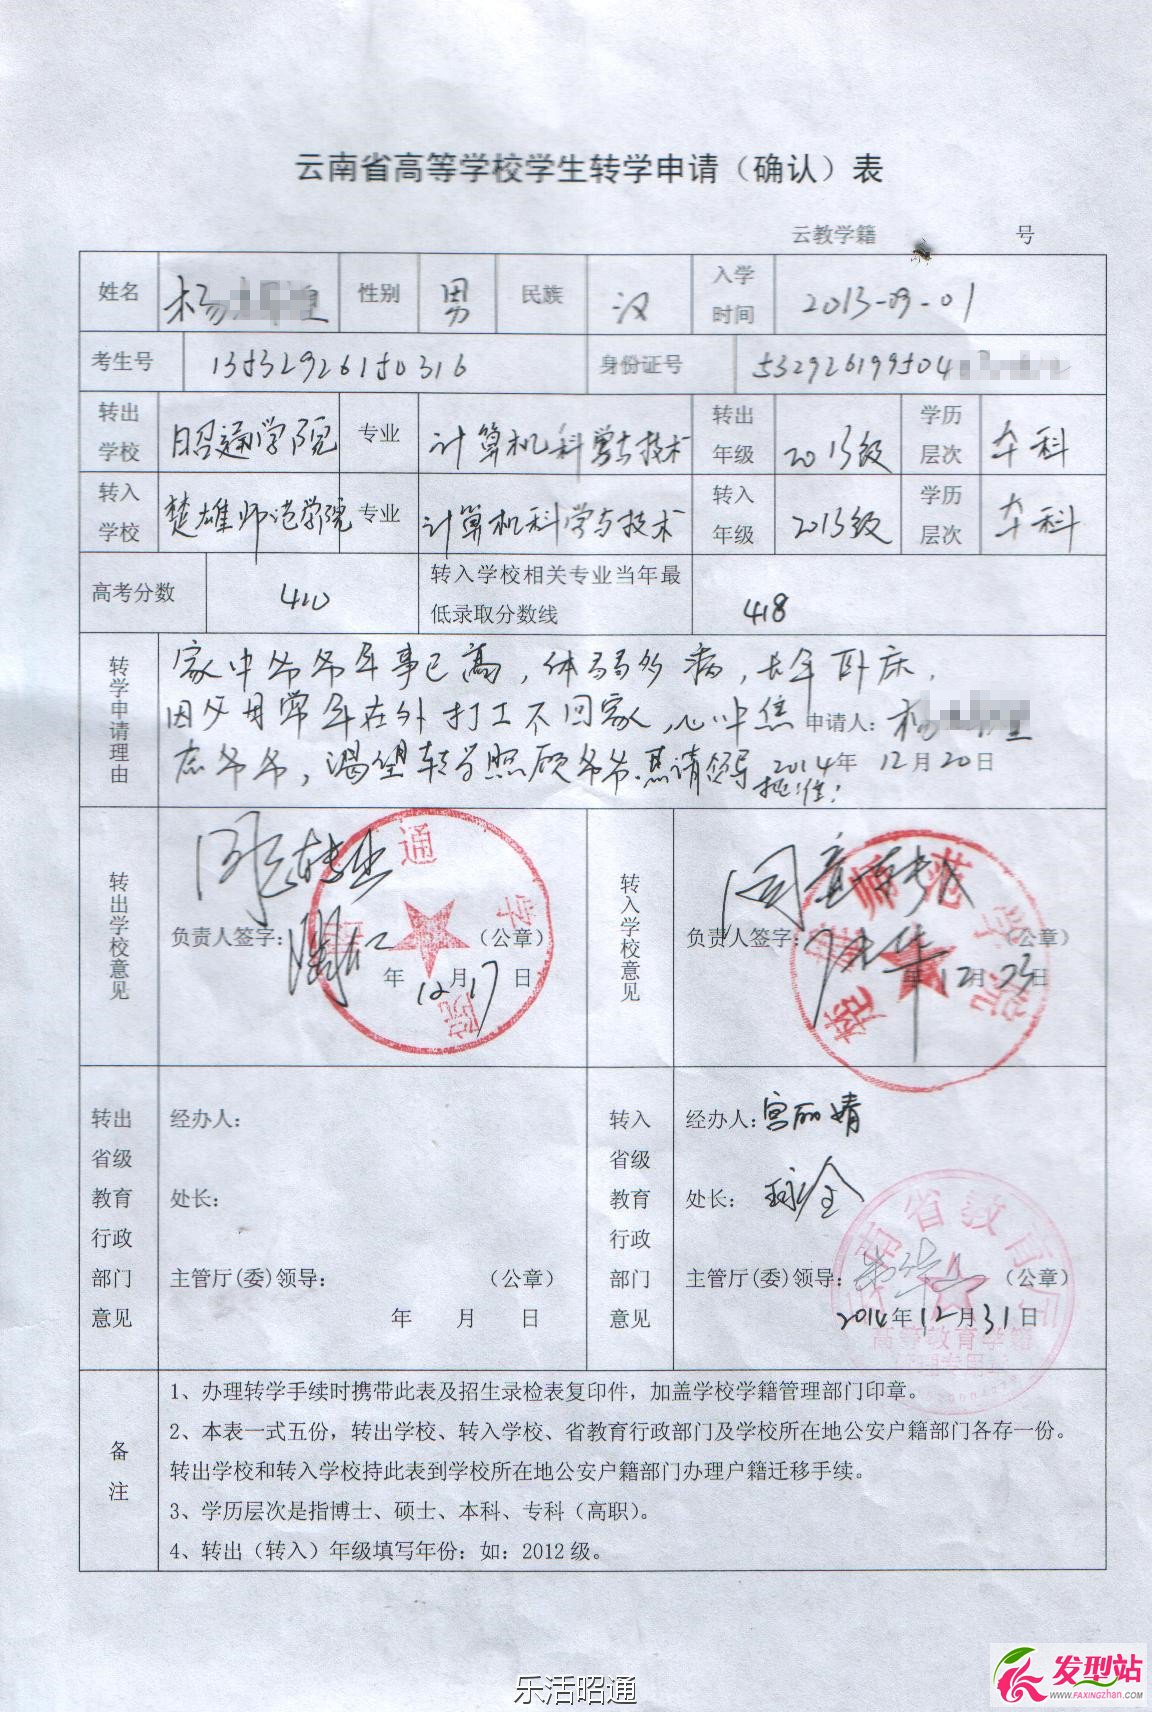 云南省高等学校学生转学申请（确认）表
云教学籍 号
姓名 杨 性别 男 民族 汉 入学时间 2013-09-01
考生号 13532926150316 身份证号 532926199504
转出学校 昭通学院 专业 计算机科学与技术 转出年级 2013级 学历层次 本科
转入学校 楚雄师范学院 专业 计算机科学与技术 转入年级 2013级 学历层次 本科
高考分数 410 转入学校相关专业当年最低录取分数线 418
转学申请理由
家中爷爷年事已高，体弱多病，长年卧床，
因父母常年在外打工不回家，心中焦
虑爷爷，渴望转学照顾爷爷。恳请领导
批准！
申请人：杨
2014年 12月20日
转出学校意见
同意转出
负责人签字： （公章）
年 12月17日
昭通学院
转入学校意见
同意转入
负责人签字： （公章）
年12月23日
楚雄师范学院
转出省级教育行政部门意见
经办人：
处长：
主管厅(委)领导： （公章）
年 月 日
转入省级教育行政部门意见
经办人：宫丽婧
处长：
主管厅(委)领导： （公章）
2014年12月31日
云南省教育厅
高等教育学籍
管理专用章
备注
1、办理转学手续时携带此表及招生录检表复印件，加盖学校学籍管理部门印章。
2、本表一式五份，转出学校、转入学校、省教育行政部门及学校所在地公安户籍部门各存一份。
转出学校和转入学校持此表到学校所在地公安户籍部门办理户籍迁移手续。
3、学历层次是指博士、硕士、本科、专科（高职）。
4、转出（转入）年级填写年份：如：2012级。
乐活昭通
发型站
www.FAXINGZHAN.COM